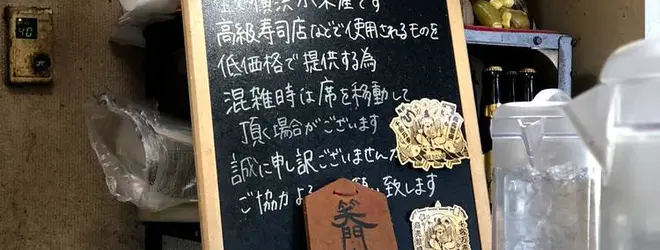 横浜小木産です
高級寿司店などで使用されるものを
低価格で提供する為
混雑時は席を移動して
頂く場合がございます
誠に申し訳ございませんが
ご協力よろ 願い致します
笑門
40